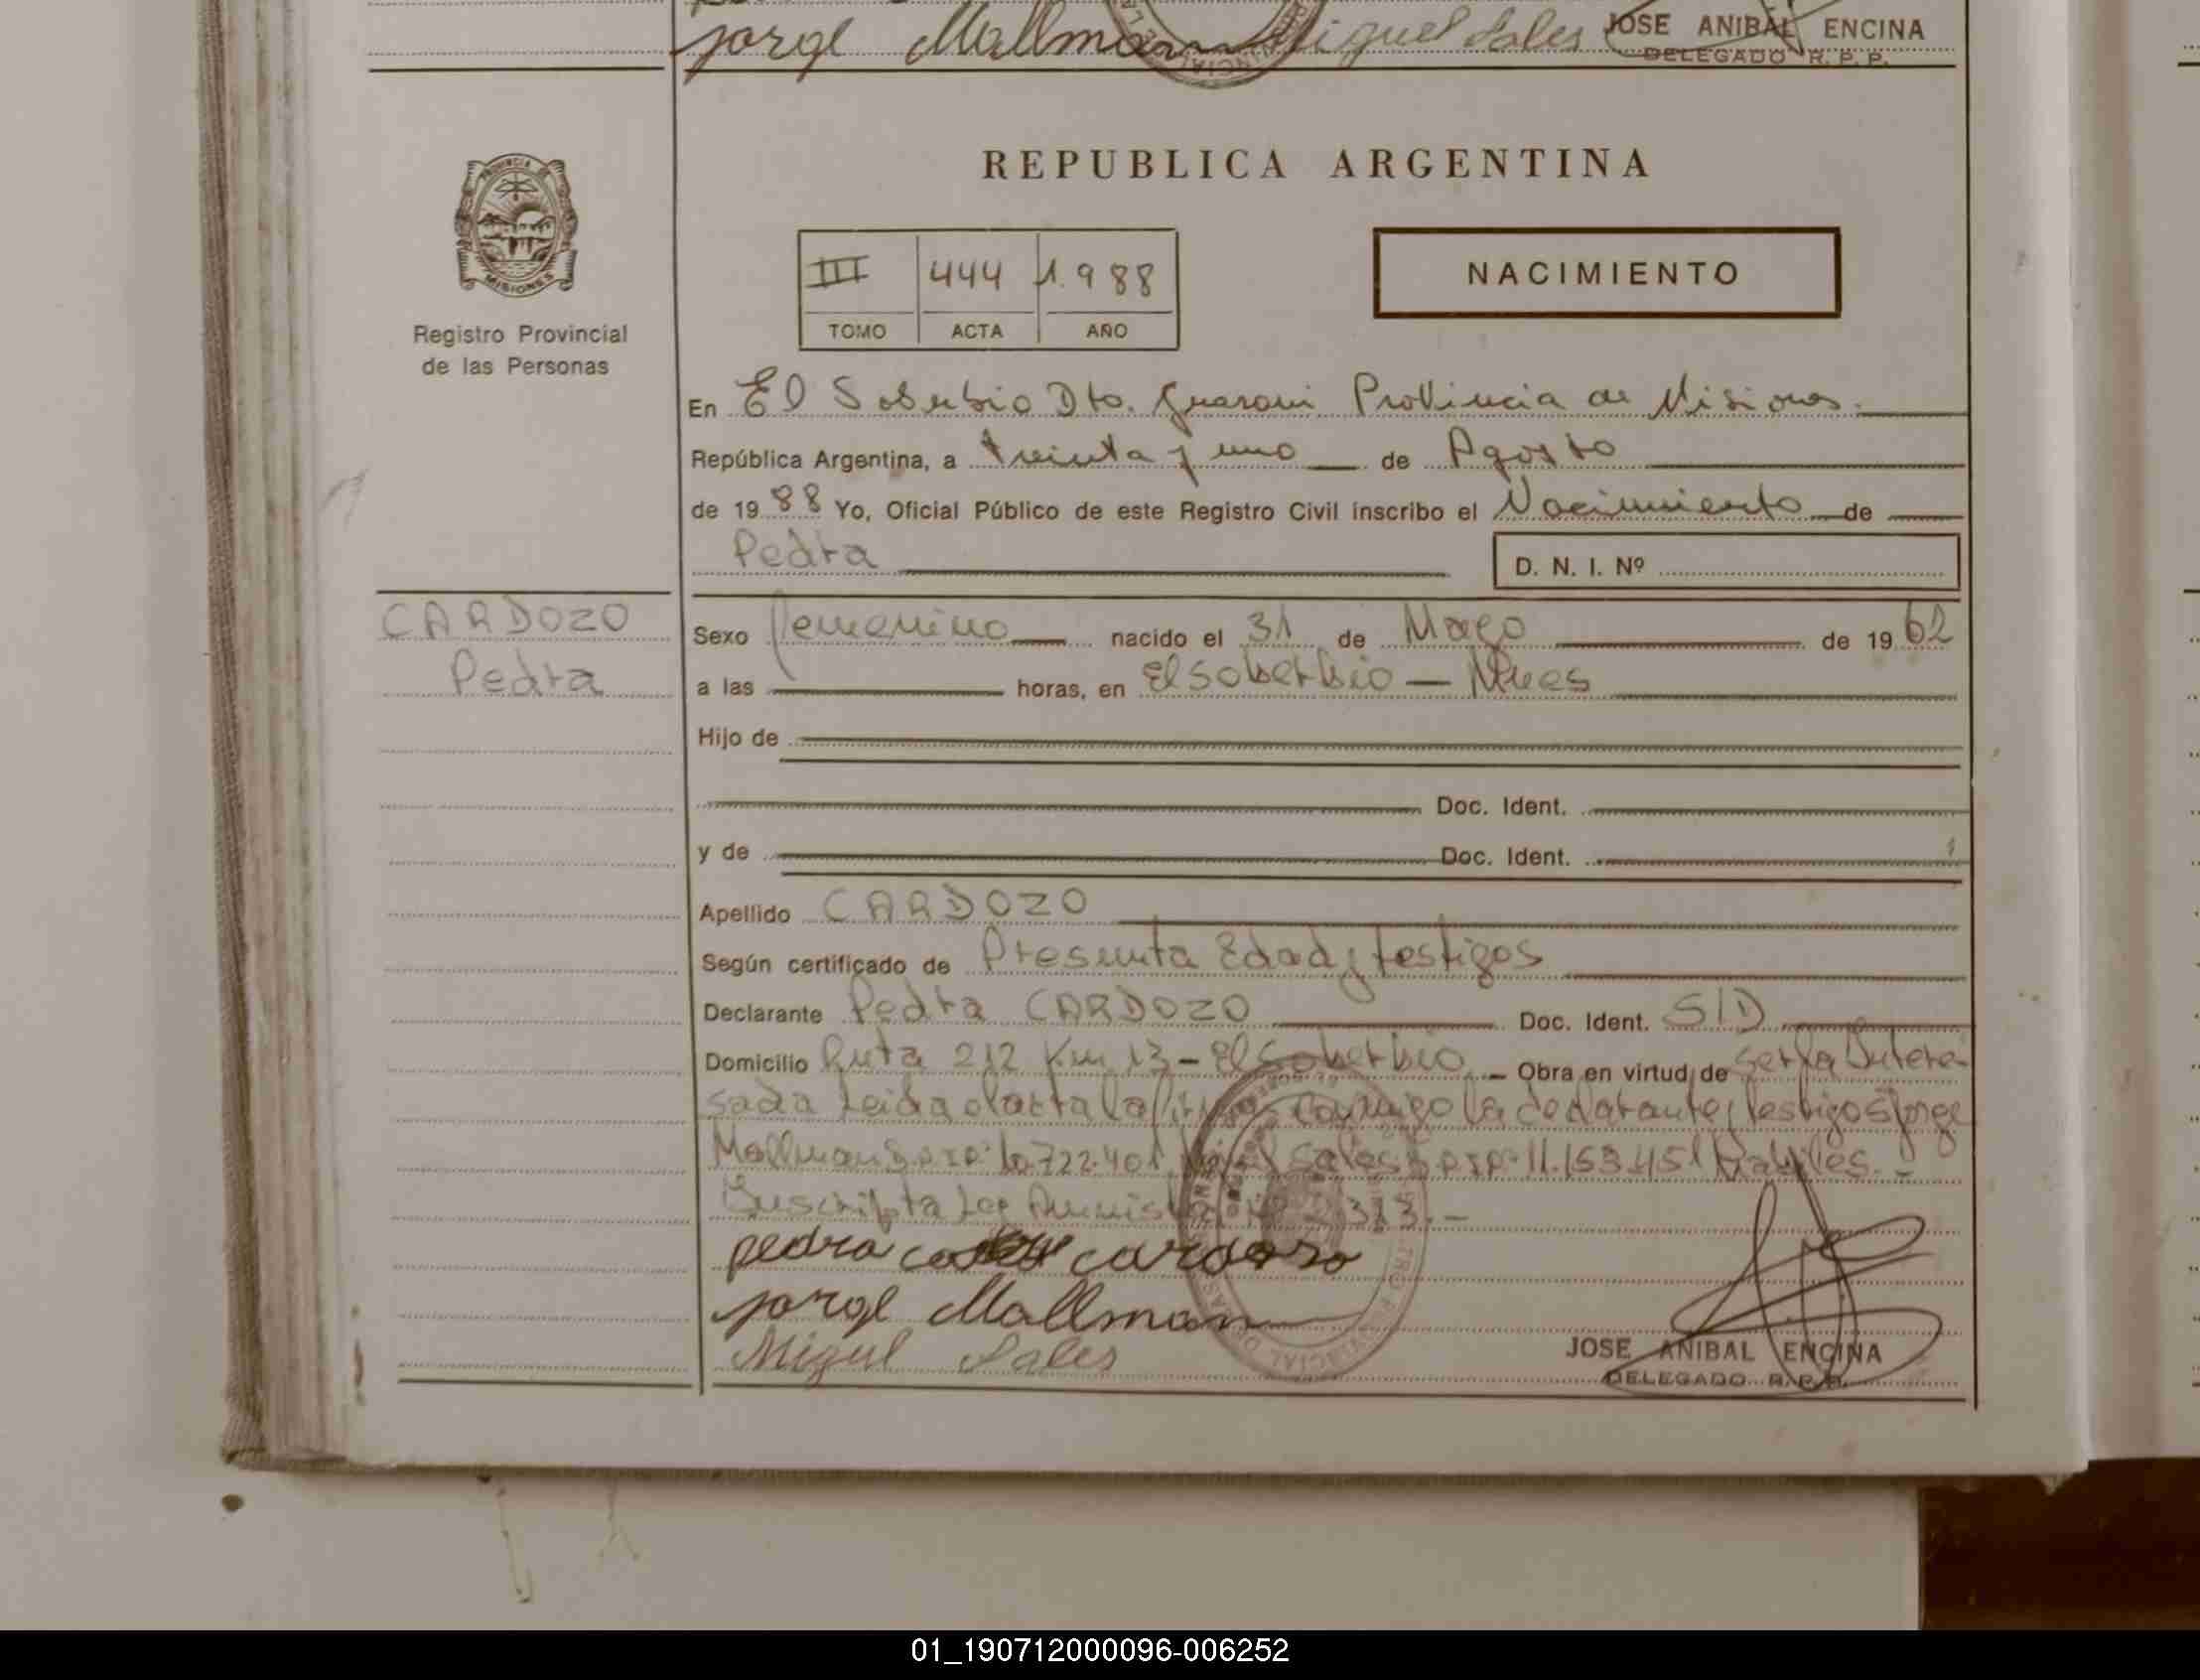 jorge Mallman Miguel Sales JOSE ANIBAL ENCINA
DELEGADO R. P. P.
PROVINCIA DE
MISIONES
Registro Provincial
de las Personas
REPUBLICA ARGENTINA
III 444 1.988
TOMO ACTA AÑO
NACIMIENTO
En El Soberbio Dto. Guarani Provincia de Misiones.
República Argentina, a treinta y uno de Agosto
de 1988 Yo, Oficial Público de este Registro Civil inscribo el Nacimiento de
Pedra D. N. I. Nº
CARDOZO
Pedra
Sexo femenino nacido el 31 de de 1962
a las horas, en El Soberbio —
Hijo de
Doc. Ident.
y de Doc. Ident.
Apellido CARDOZO
Según certificado de Presunta Edad y testigos
Declarante Pedra CARDOZO Doc. Ident. S/D
Domicilio Ruta 212 Km 13 - El Soberbio Obra en virtud de ser la Intere-
sada Leida el acta la conmigo la declarante y testigos Jorge
Mallman 10.722.401 Sales 11.153.451 Habiles. -
Suscripta
pedra cardozo
jorge Mallman
Miguel Sales
JOSE ANIBAL ENCINA
DELEGADO R. P. P.
01_190712000096-006252